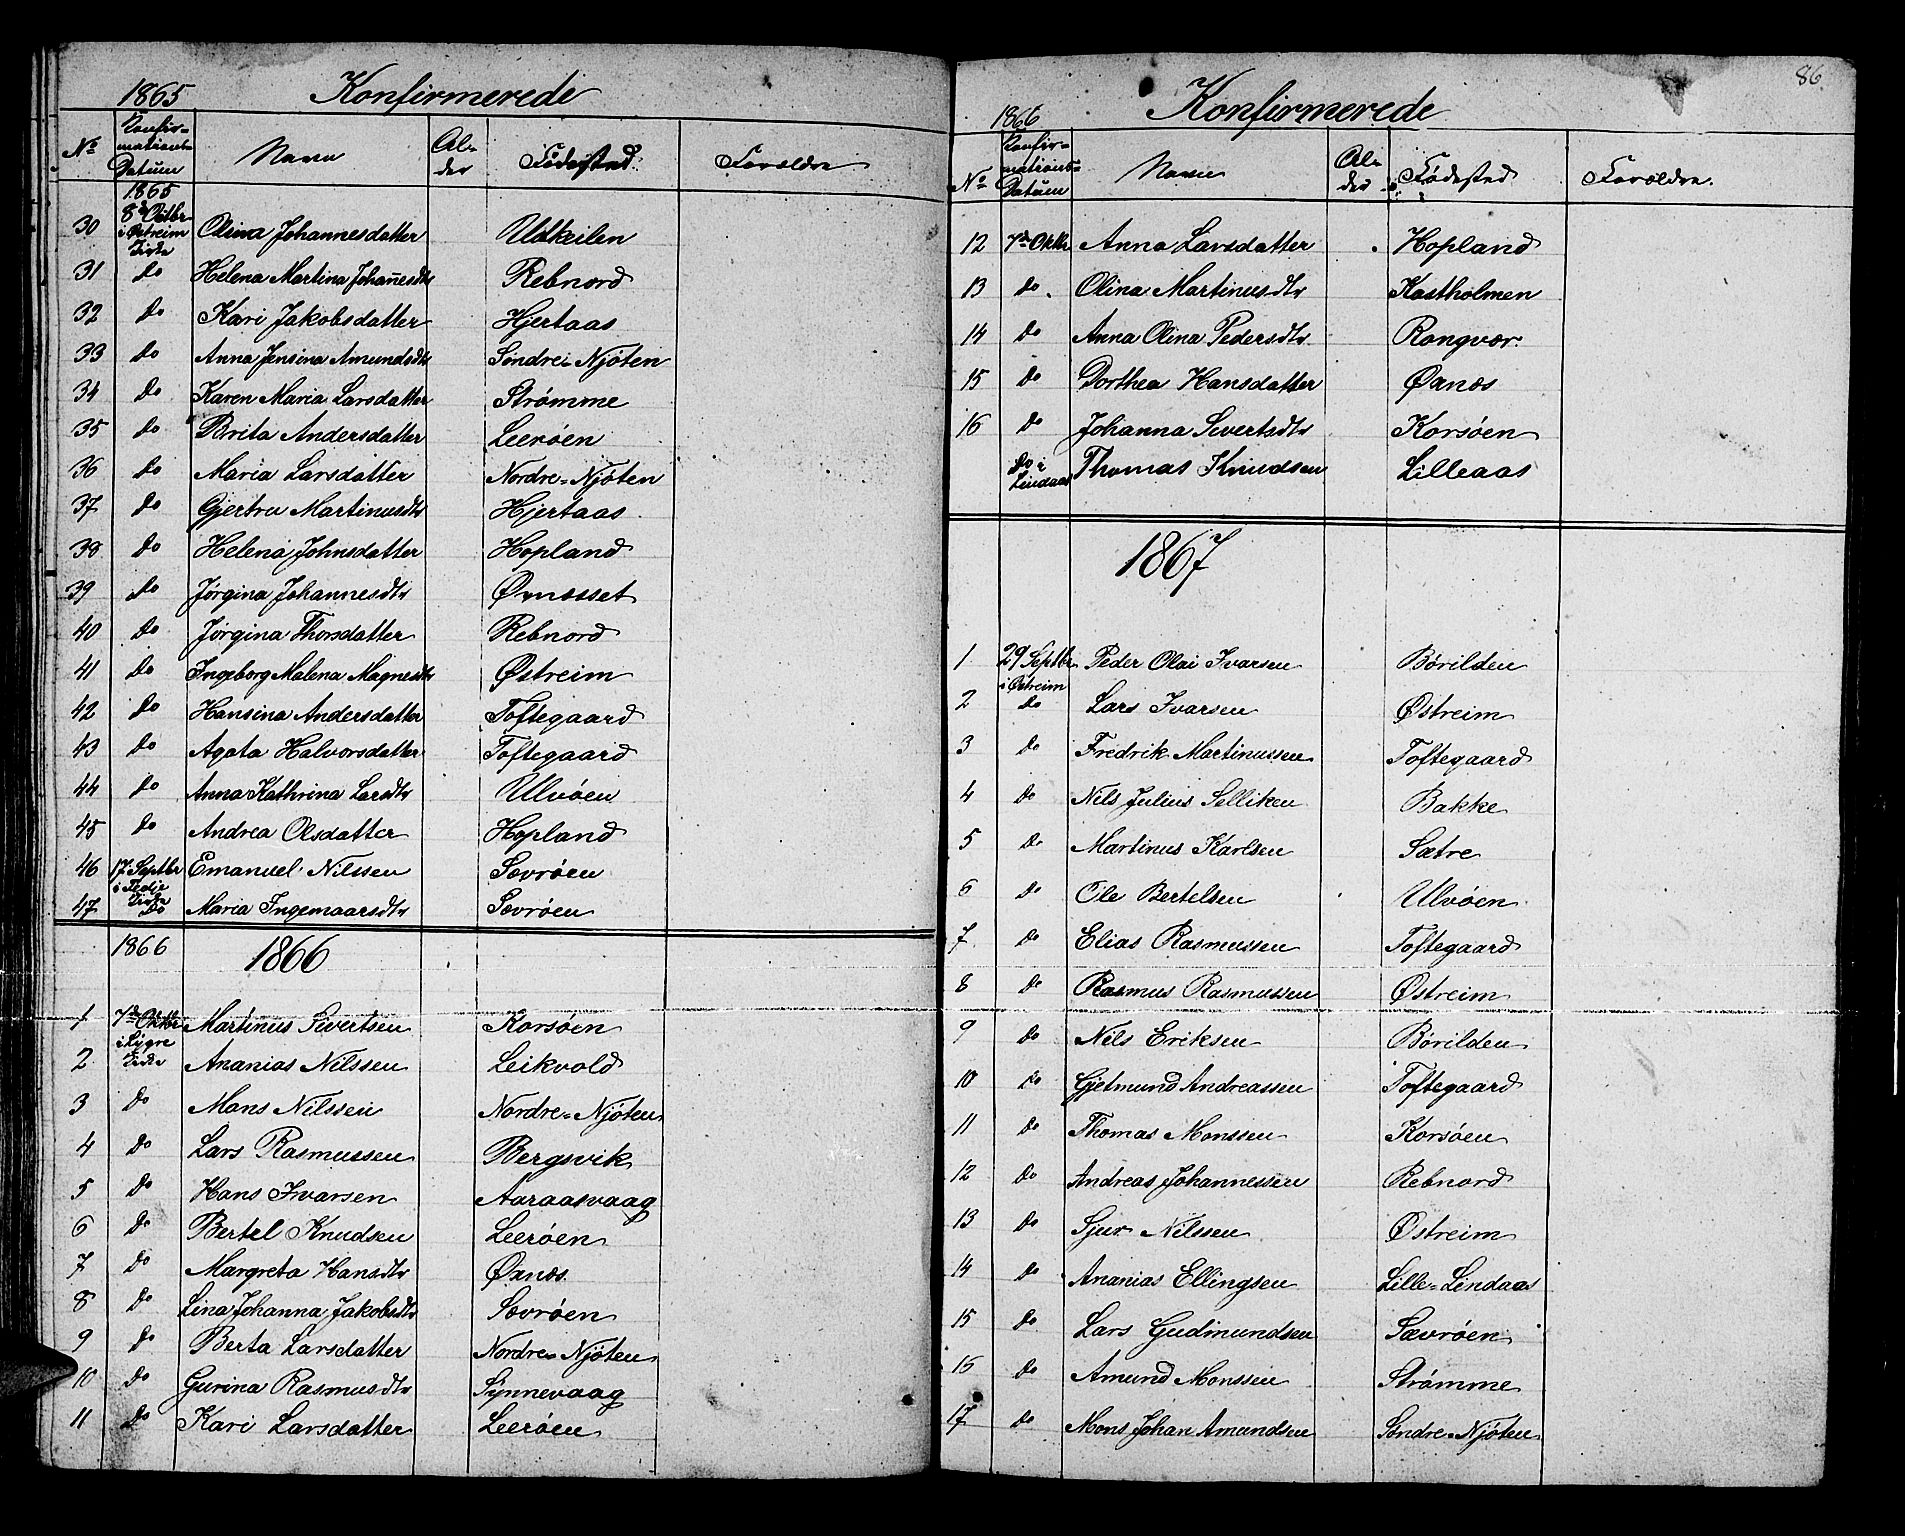 1865 Konfirmerede
No Konfir=mations Datum Navn Al=der Fødested Forældre
1865
30 8de Octbr i Østreim Kirke Olina Johannesdatter Udkeilen
31 do Helena Martina Johan̄esdtr Rebnord
32 do Kari Jakobsdatter Hjertaas
33 do Anna Jensina Amundsdtr Søndre=Njøten
34 do Karen Maria Larsdatter Strømme
35 do Brita Andersdatter Leerøen
36 do Maria Larsdatter Nordre=Njøten
37 do Gjertru Martinusdtr Hjertaas
38 do Helena Johnsdatter Hopland
39 do Jørgina Johannesdtr Ørnæsset
40 do Jørgina Thorsdatter Rebnord
41 do Ingeborg Malena Magnesdtr Østreim
42 do Hansina Andersdatter Toftegaard
43 do Agata Halvorsdatter Toftegaard
44 do Anna Kathrina Larsdtr Ulvøen
45 do Andrea Olsdatter Hopland
46 17 Septbr i Fedje Kirke Emanuel Nilssen Sævrøen
47 do Maria Ingemaarsdtr Sævrøen
1866 1866
1 7de Oktbr i Lygre Kirke Martinus Sivertsen Korsøen
2 Ananias Nilssen Leikvold
3 do Mons Nilssen Nordre=Njøten
4 do Lars Rasmussen Bergsvik
5 do Hans Ivarsen Aaraasvaag
6 do Bertel Knudsen Leerøen
7 do Margreta Hansdtr Øxnæs
8 do Lina Johanna Jakobsdtr Sævrøen
9 do Berta Larsdatter Nordre=Njøten
10 do Gurina Rasmusdtr Synnevaag
11 do Kari Larsdatter Leerøen
86
1866 Konfirmerede
No Konfir=mations=Datum Navn Al=der Fødested Forældre.
12 7de Oktbr Anna Larsdatter Hopland
13 do Olina Martinusdtr Kastholmen
14 do Anna Olina Pedersdtr Rongvær.
15 do Dorthea Hansdatter Øxnæs
16 do Johanna Sivertsdtr Korsøen
do i Lindaas Thomas Knudsen Lilleaas
1867
1 29 Septbr i Østreim Peder Olai Ivarsen Børilden
2 do Lars Ivarsen Østreim
3 do Fredrik Martinussen Toftegaard
4 do Nils Julius Selliken Bakke
5 do Martinus Karlsen Sætre
6 do Ole Bertelsen Ulvøen
7 do Elias Rasmussen Toftegaard
8 do Rasmus Rasmussen Østreim
9 do Nils Eriksen Børilden
10 do Gjetmund Andreassen Toftegaard
11 do Thomas Monssen Korsøen
12 do Andreas Johannessen Rebnord
13 do Sjur Nilssen Østreim
14 do Ananias Ellingsen Lille=Lindaas
15 do Lars Gudmundsen Sævrøen
16 do Amund Monssen Strømme
17 do Mons Johan Amundsen Søndre=Njøten